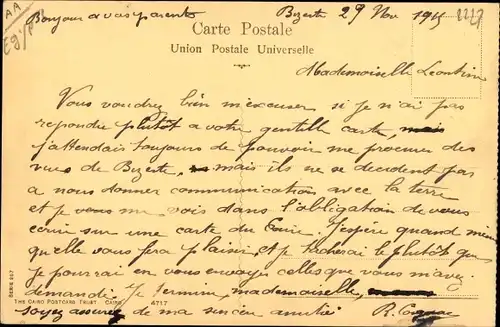 AA
Egip
Bonjour a vos parents
Bizerte 29 Nov 191
Carte Postale
Union Postale Universelle
Mademoiselle Leontine
Vous voudrez bien m'excuser si je n'ai pas
repondu plutôt a votre gentille carte, mais
j'attendais toujours de pouvoir me procurer des
vues de Bizerte, mais ils ne se decident pas
a nous donner communication avec la terre
et je vous me vois dans l'obligation de vous
ecrire sur une carte du Caire. J'espere quand meme
qu'elle vous fera plaisir, et je tacherai le plutôt que
je pourrai en vous envoyer celles que vous m'avez
demandé. Je termine mademoiselle,
SERIE 557
THE CAIRO POSTCARD TRUST CAIRO
4717
Soyez assurée de ma sincère amitié R.